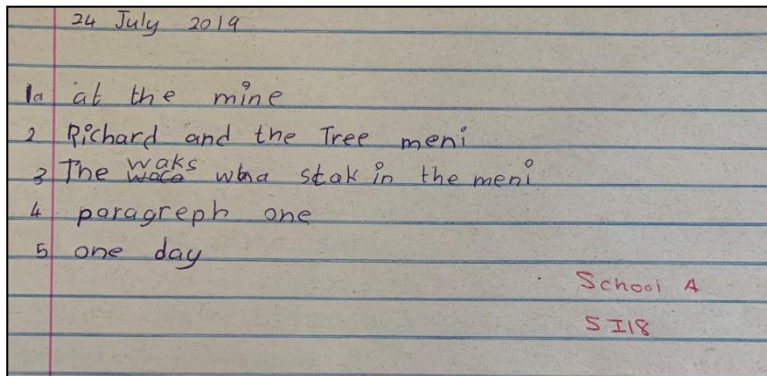 24 July 2019
1a at the mine
2 Richard and the Tree meni
3 The waks wha stak in the meni
4 paragreph one
5 one day
School A
S I18